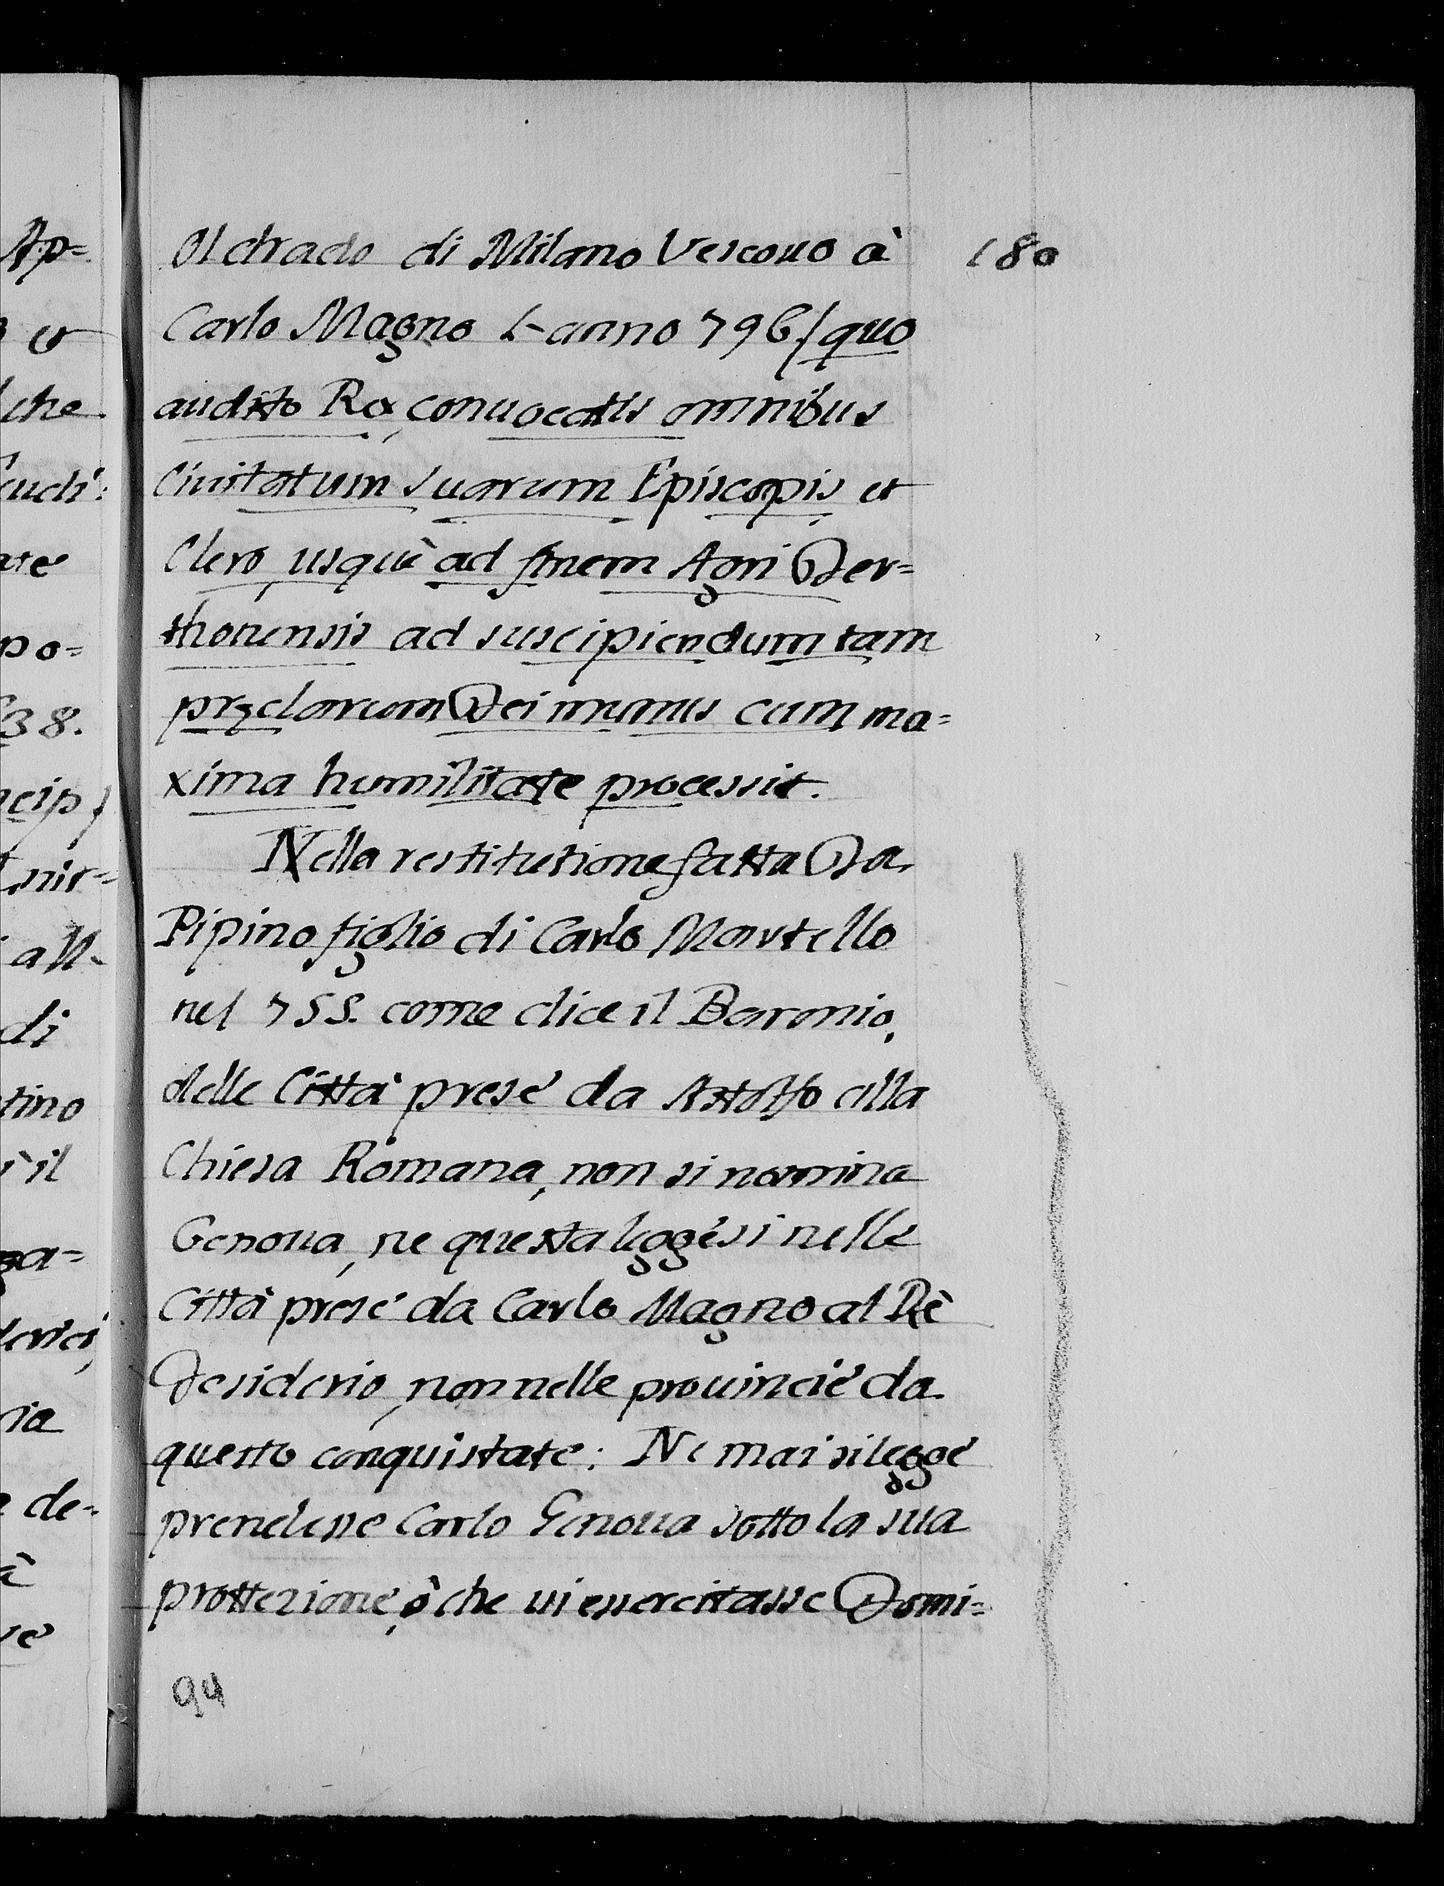 Oldrado di Milano Vescouo à 180
Carlo Magno l'anno 796/ quo
audito Rex, conuocatis omnibus
Ciuitatum suarum Episcopis et
Clero, usquè ad finem Agri Der=
thonensis ad suscipiendum tam
præclarum Dei munus cum ma=
xima humilitate processit.
Nella restitutione fatta Da
Pipino figlio di Carlo Martello
nel 755. come dice il Baronio,
delle Città prese da Astolfo alla
Chiesa Romana, non si nomina
Genoua, ne questa leggesi nelle
Città prese da Carlo Magno al Rè
Desiderio, non nelle prouincie da
questo conquistate: Ne mai si legge
prendesse Carlo Genoua sotto la sua
prottezione, ò che ui essercitasse Domi=
94
Ap=
et
che
ate
po=
38.
di
tino
il
ria
de=
à